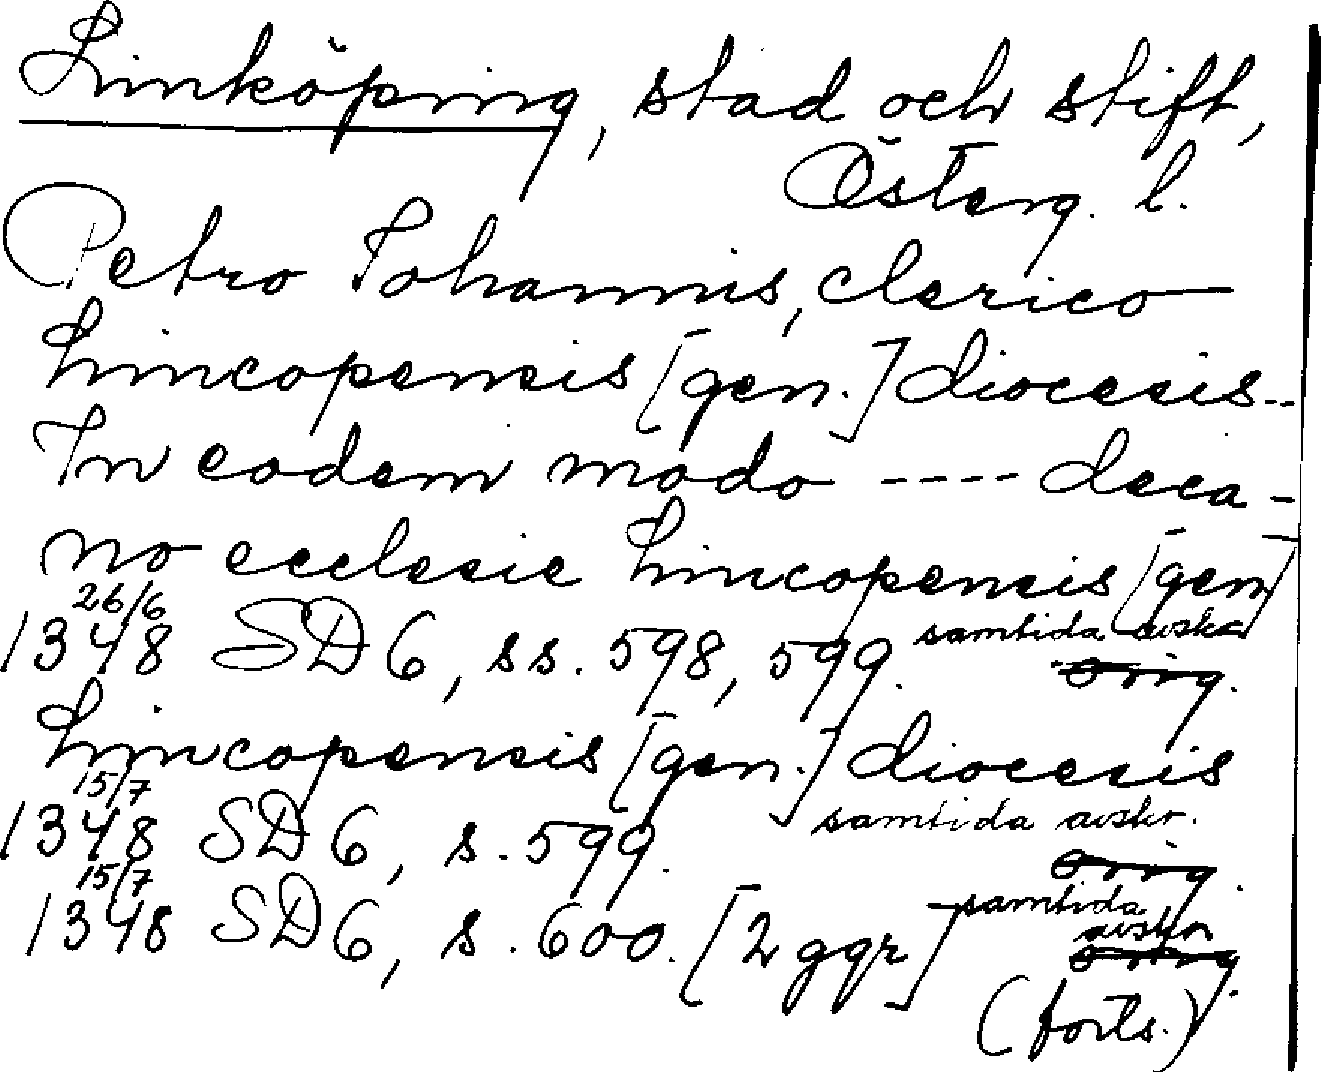 Linköping, stad och stift,
Österg. l.
Petro Johannis, clerico
Lincopensis [gen.] diocesis--
In eodem modo ---- deca-
no ecclesie Lincopensis [gen]
1348 26/6 SD 6, ss. 598, 599. samtida avskr. orig.
Lincopensis [gen.] diocesis
1348 15/7 SD 6, s. 599. samtida avskr. orig.
1348 15/7 SD 6, s. 600. [2 ggr] samtida avskr orig.
(forts.)